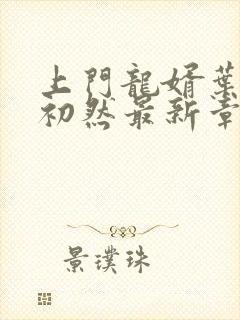 上門龍婿葉
初然最新章
景璞珠